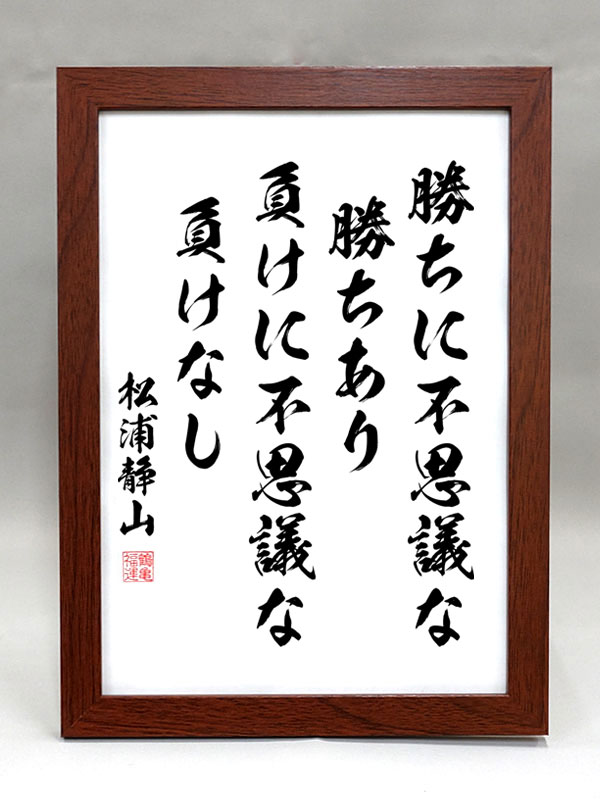 勝ちに不思議な
勝ちあり
負けに不思議な
負けなし
松浦静山
鶴亀
福運